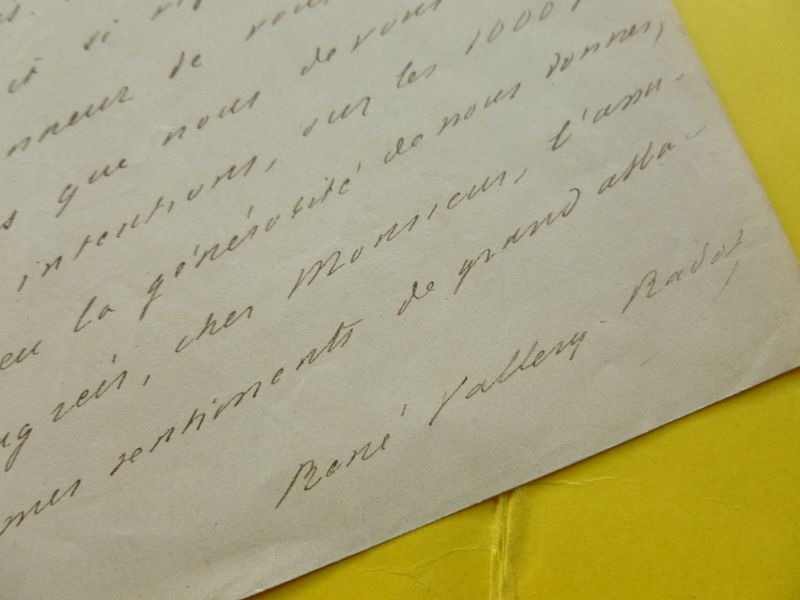 si
nneur de vous
s que nous devons
intentions, sur les 1000 f
eu la générosité de nous donner,
Agréez, cher Monsieur, l'assu-
mes sentiments de grand atta-
René Vallery-Radot